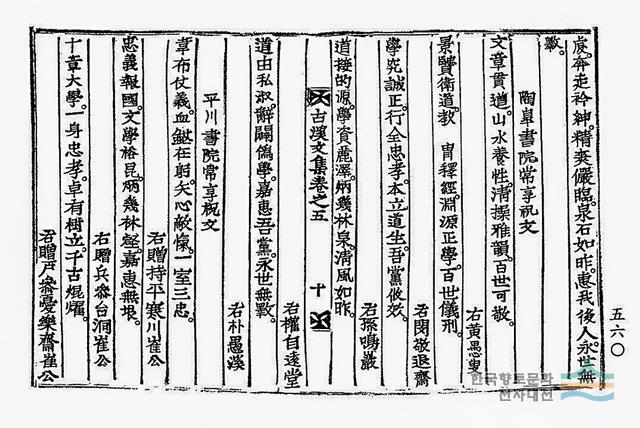 五六〇
虔。奔走衿紳。精爽儼臨。泉石如昨。惠我後人。永世無
斁。
陶皐書院常享祝文
文章貫道。山水養性。清操雅韻。百世可敬。
右黃愚叟
景賢衛道。教胄釋經。淵源正學。百世儀刑。
右閔敬退齋
學究誠正。行全忠孝。本立道生。吾黨倣效。
右孫鳴巖
道接的源。學資麗澤。炳幾林泉。清風如昨。
右權自遠堂
古溪文集卷之五 十
道由私淑。辭闢僞學。嘉惠吾黨。永世無斁。
右朴愚溪
平川書院常享祝文
韋布仗義。血戰在躬。矢心敵愾。一室三忠。
右贈持平寒川崔公
忠義報國。文學裕昆。炳幾林壑。嘉惠無垠。
右贈兵參台洞崔公
十章大學。一身忠孝。卓有樹立。千古焜燿。
右贈戶參憂樂齋崔公
한국향토문화
전자대전